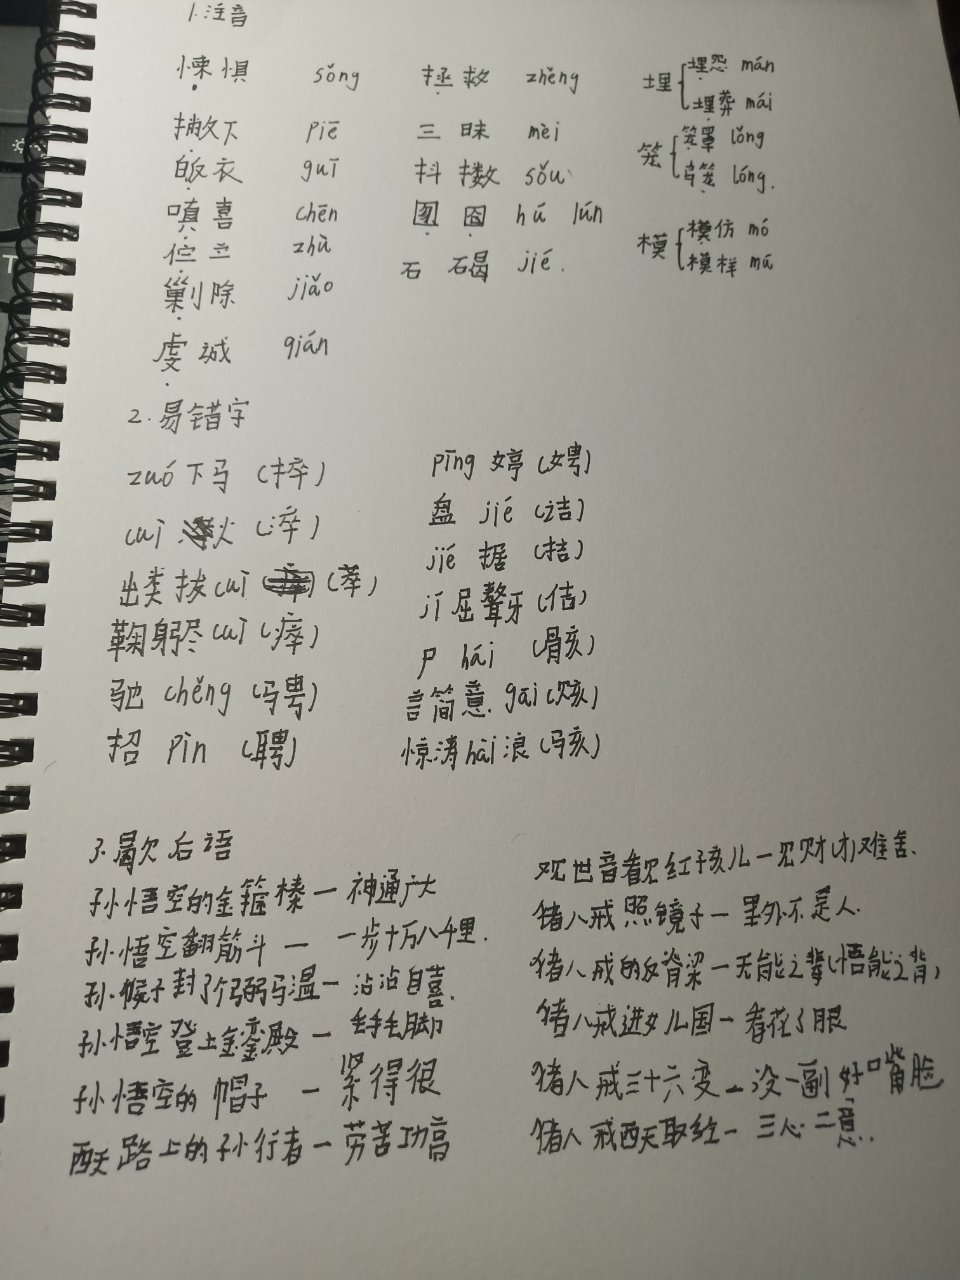 1.注音
悚惧 sǒng
撇下 piē
皈衣 guī
嗔喜 chēn
伫立 zhù
剿除 jiǎo
虔诚 qián
拯救 zhěng
三昧 mèi
抖擞 sǒu
囫囵 hú lún
石碣 jié.
埋 埋怨 mán
埋葬 mái
笼 笼罩 lǒng
鸟笼 lóng.
模 模仿 mó
模样 mú
2.易错字
zuó下马(捽)
cuì 火(淬)
出类拔cuì(萃)
鞠躬尽cuì(瘁)
驰 chěng(骋)
招 pìn (聘)
pīng 婷(娉)
盘 jié (诘)
jié 据 (拮)
jí屈聱牙(佶)
尸 hái (骨亥)
言简意.gāi(赅)
惊涛hài浪(骇)
3.歇后语
孙悟空的金箍棒—神通广大
孙悟空翻筋斗 — 一步十万八千里.
孙猴子封了个弼马温—沾沾自喜.
孙悟空登上金銮殿—毛手毛脚
孙悟空的 帽子 — 紧得很
西天路上的孙行者—劳苦功高
观世音看见红孩儿—见财才难舍.
猪八戒照镜子—里外不是人.
猪八戒的反脊梁—无能之辈(悟能之背)
猪八戒进女儿国—看花了眼
猪八戒三十六变—没一副好口嘴脸
猪八戒西天取经—三心二意.